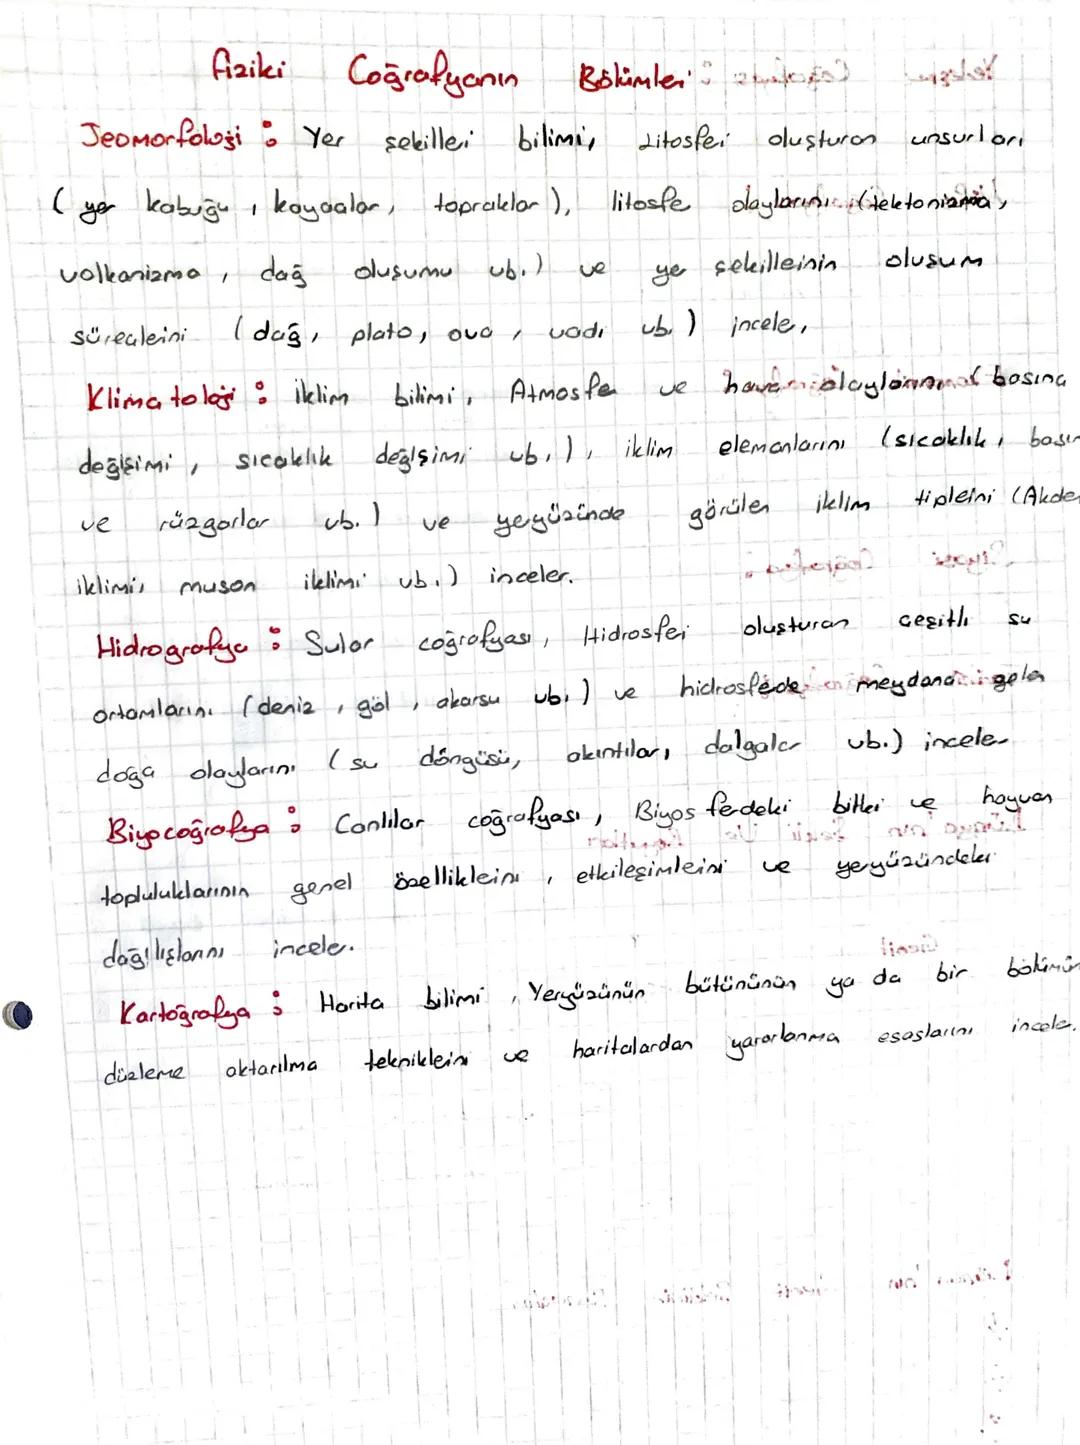 Fiziki Coğrafyanın Bölümleri :
Jeomorfoloji : Yer şekilleri bilimi, Litosferi oluşturan unsurları
( yer kabuğu, kayaçlar, topraklar ), litosfer olaylarını (tektonizma,
volkanizma, dağ oluşumu vb.) ve yer şekillerinin oluşum
süreçlerini (dağ, plato, ova, vadi vb.) inceler,
Klimatoloji : İklim bilimi, Atmosfer ve hava olaylarını ( basınç
değişimi, sıcaklık değişimi vb.), iklim elemanlarını (sıcaklık,
ve rüzgarlar vb.) ve yeryüzünde görülen iklim tiplerini
iklimi, muson iklimi vb.) inceler.
Hidrografya : Sular coğrafyası, Hidrosferi oluşturan çeşitli su
ortamlarını (deniz, göl, akarsu vb.) ve hidrosferde meydana gelen
doğa olaylarını (su döngüsü, akıntılar, dalgalar vb.) inceler
Biyocoğrafya : Canlılar coğrafyası, Biyosferdeki bitki ve hayvan
topluluklarının genel özelliklerini, etkileşimlerini ve yeryüzündeki
dağılışlarını inceler.
Kartoğrafya : Harita bilimi, Yeryüzünün bütününün ya da bir bölümün
düzleme aktarılma tekniklerini ve haritalardan yararlanma esaslarını inceler.